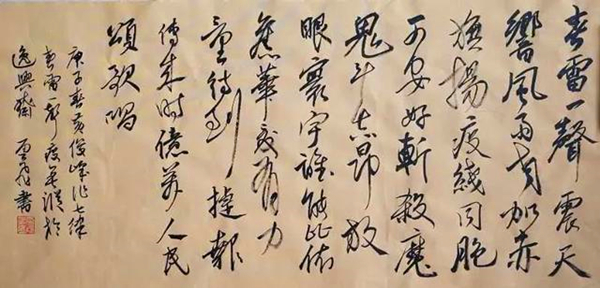 春雷一聲震天
響風雨交加赤
旗揚疫綫同胞
可安好斬殺魔
鬼斗志昂放
眼寰宇誰能比依
然華夏有力
量待到捷報
傳來時億萬人民
頌歌唱
庚子春黃俊峰作七律
春雷一聲於
逸興齋雲飛書